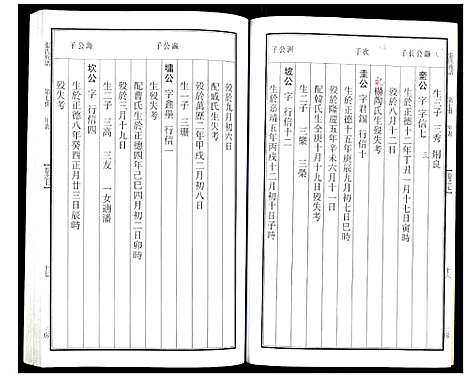 生三子 三秀 朋良
鎰公長子
奎公 字 行信七
生於正德十二年丁丑一月十七日寅時
歿於八月十二日
配楊陶氏生歿失考
次子
圭公 字君錫 行信十
生於正德十五年庚辰九月初七日巳時
歿於隆慶五年辛未六月十一日
配韓氏生全庚十月十九日歿失考
生二子 三樂 三榮
淵公子
坡公 字 行信十二
生於嘉靖五年丙戌十二月初十日子時
歿於九月初六日
配臧氏生歿失考
濊公子
墉公 字鑫壘 行信一
歿於萬歷二年甲戌二月初八日
生一子 三珊
配曹氏生於正德四年己巳四月初二日卯時
歿於三月十九日
生二子 三高 三友 一女適潘
海公子
坎公 字 行信四
生於正德八年癸酉正月廿三日辰時
歿失考